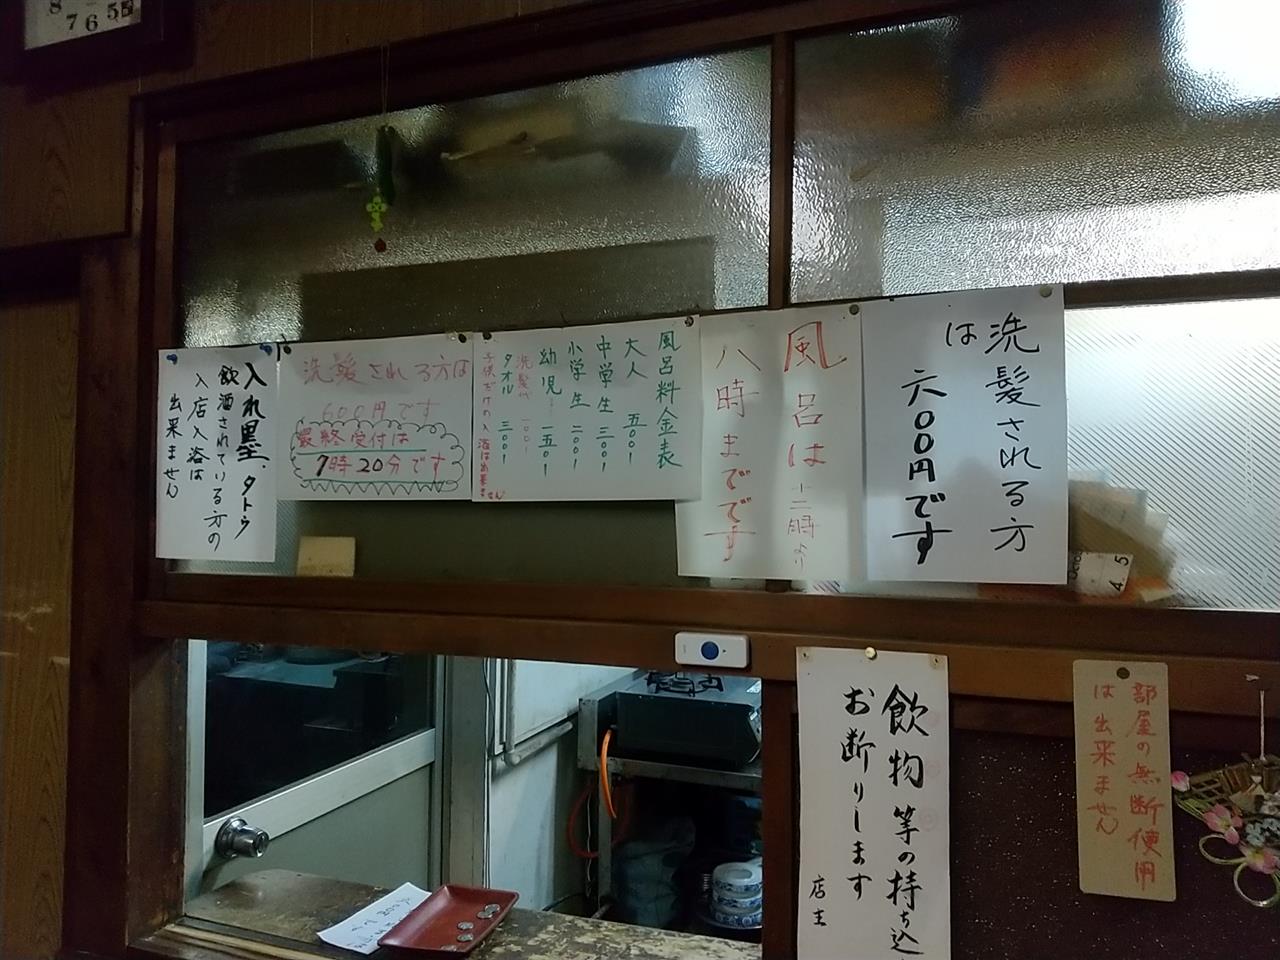 8 7 6 5
洗髪される方
は
六〇〇円です
風呂は十二時より
八時までです
風呂料金表
大人 五〇〇1
中学生 三〇〇1
小学生 二〇〇1
幼児… 一五〇1
洗髪代 一〇〇1
タオル 三〇〇1
子供だけの入浴は出来ません
洗髪される方は
600円です
最終受付は
7時20分です
入れ墨.タトゥ
飲酒されている方の
入店入浴は
出来ません
5
4
飲物等の持ち込
お断りします
店主
部屋の無断使用
は出来ません